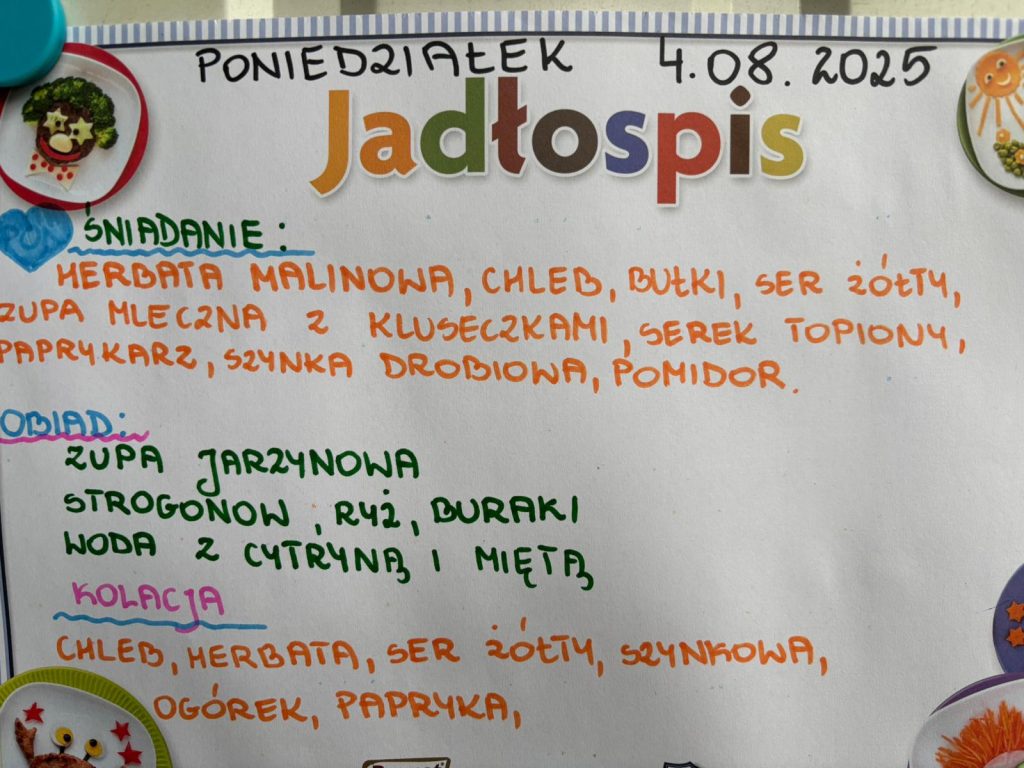 PONIEDZIAŁEK 4.08.2025
Jadłospis
PON ŚNIADANIE:
HERBATA MALINOWA, CHLEB, BUŁKI, SER ŻÓŁTY,
ZUPA MLECZNA Z KLUSECZKAMI, SEREK TOPIONY,
PAPRYKARZ, SZYNKA DROBIOWA, POMIDOR.
OBIAD:
ZUPA JARZYNOWA
STROGONOW, RYŻ, BURAKI
WODA Z CYTRYNĄ I MIĘTĄ
KOLACJA
CHLEB, HERBATA, SER ŻÓŁTY, SZYNKOWA,
OGÓREK, PAPRYKA,